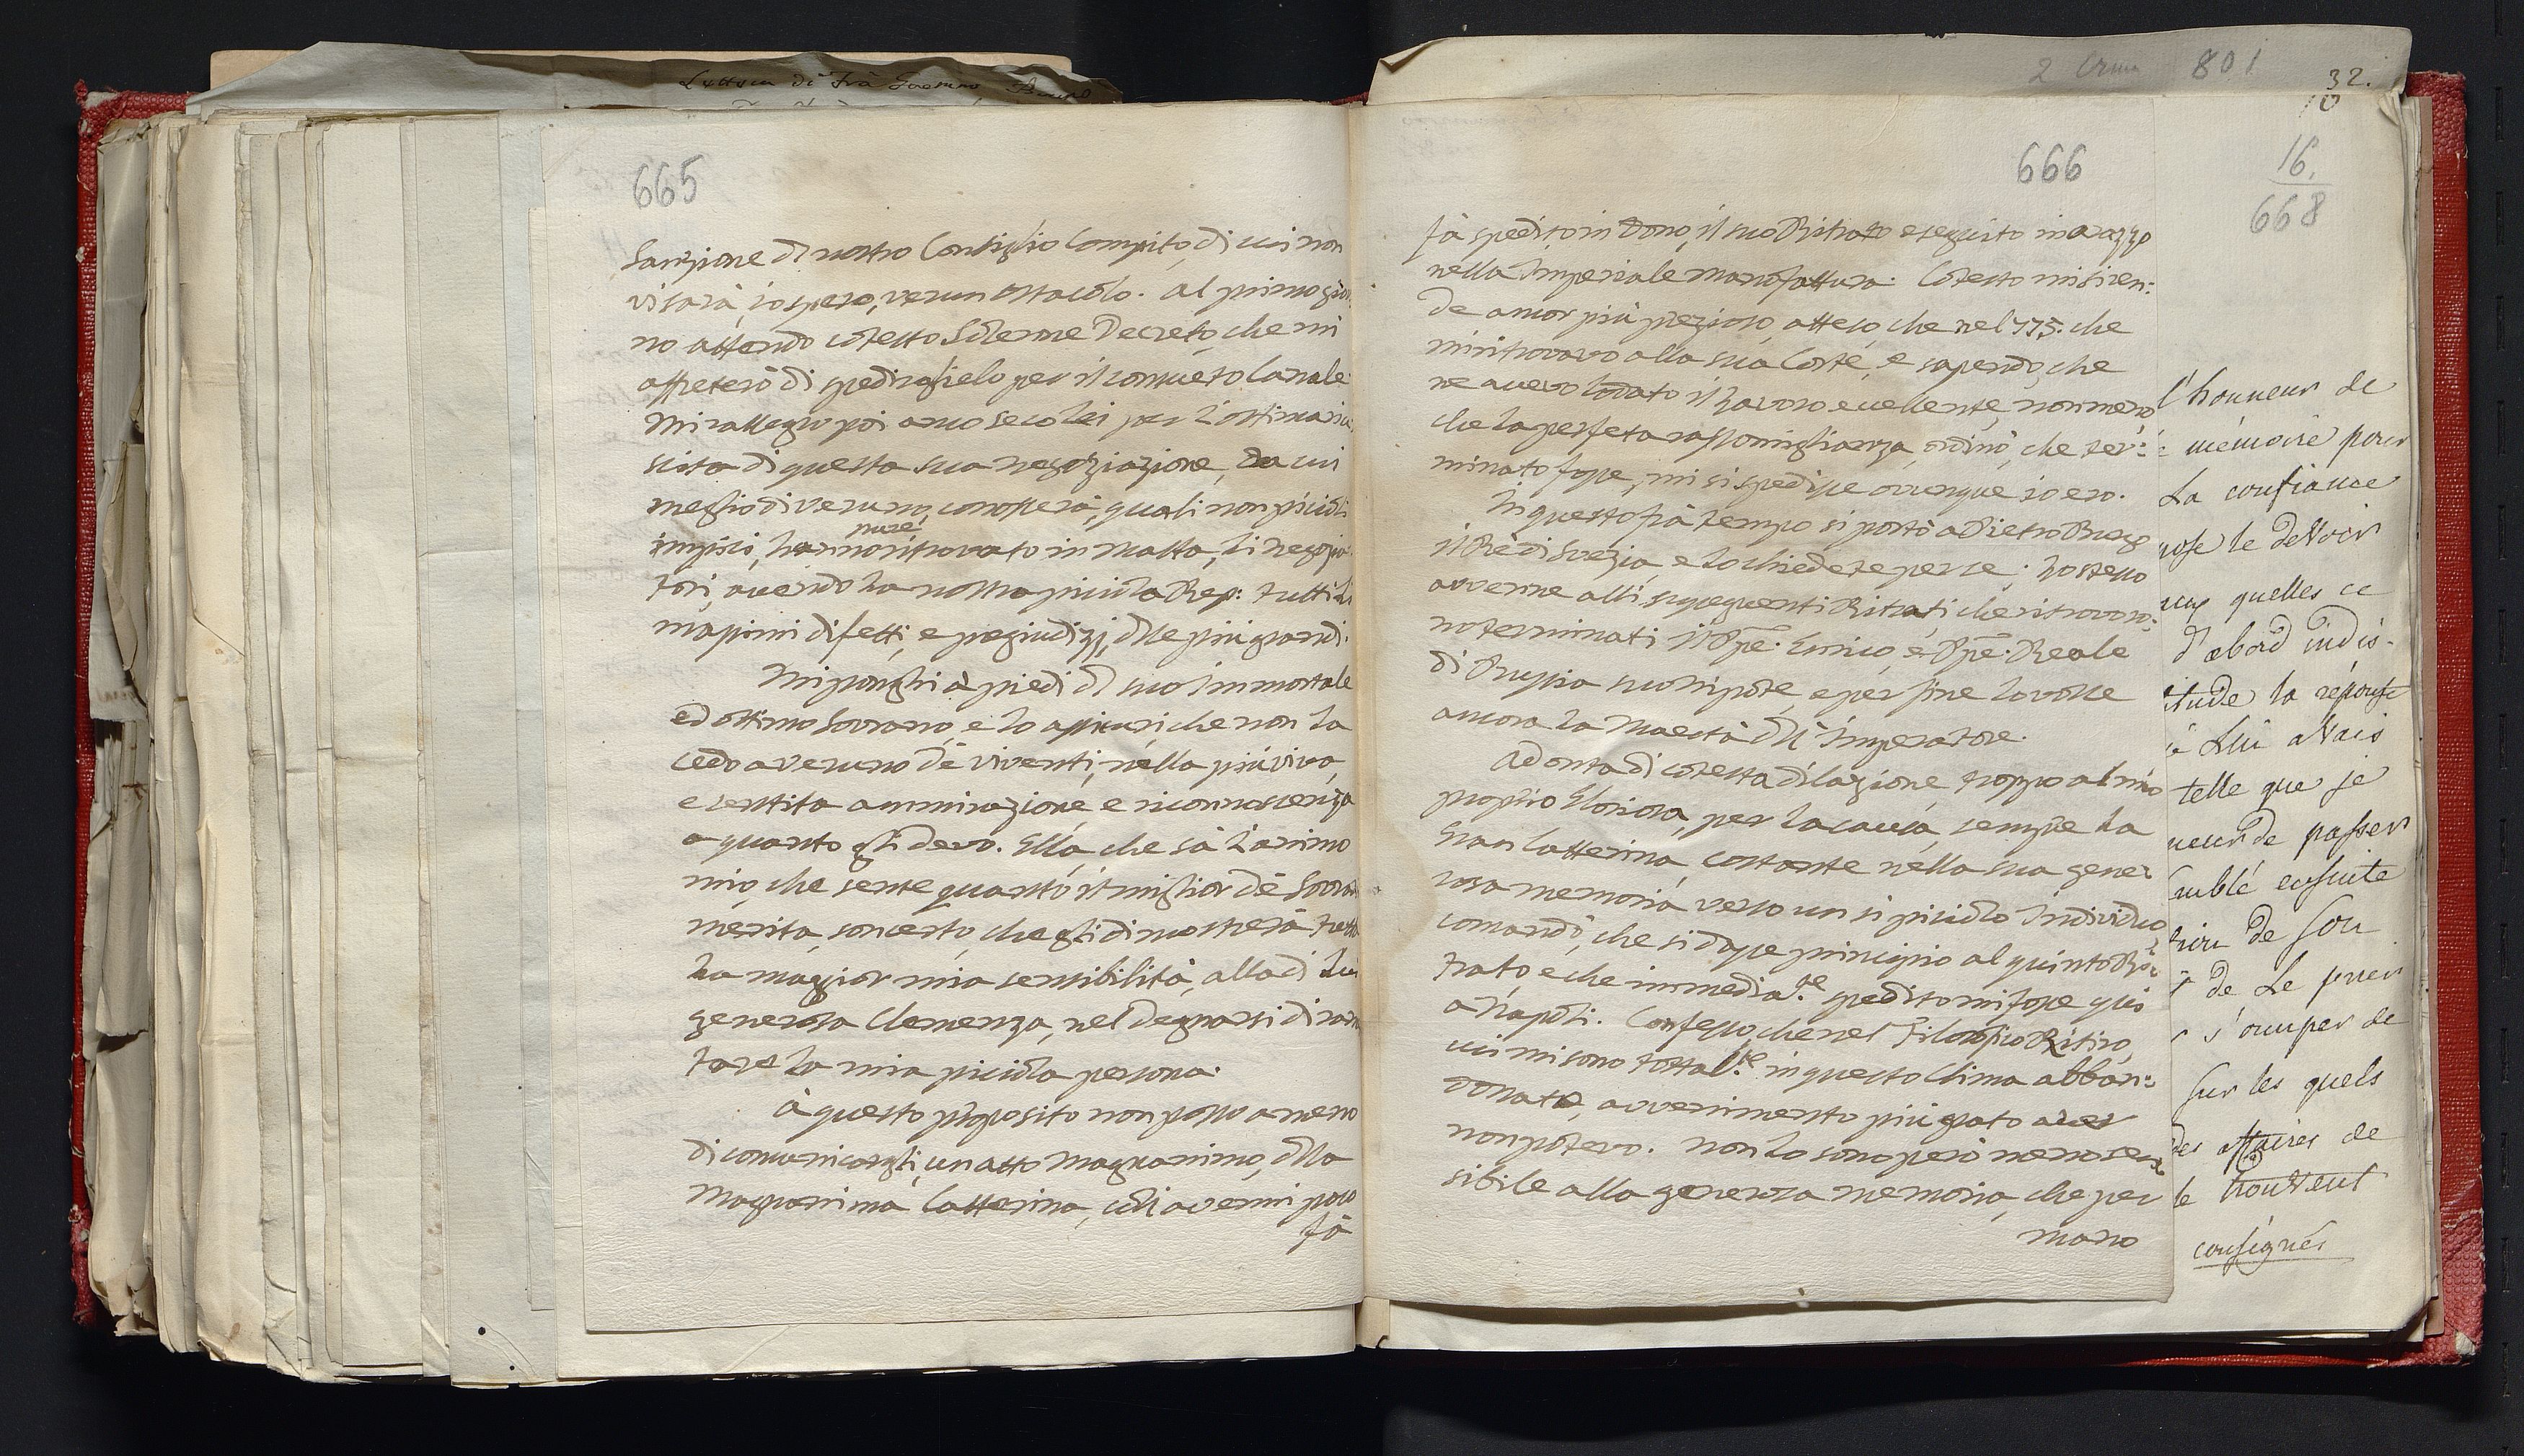 Lettera di Frà
2 801
32.
10
16.
668
665
Sanzione di nostro Consiglio Compito, di cui non
vi sarà, io spero, verun ostacolo. Al primo gior
no attendo cotesto Solenne Decreto, che mi
affreterò di spedirglielo per il consueto Canale
Mi rallegro poi anco seco Lei per l'ottima riu
scita di questa sua negoziazione, da cui
meglio di veruno, conoscerà, quali non piccioli
impicci, hanno pure ritrovato in Malta, li negozia
tori, avendo la nostra picciola Rep: tutti li
massimi difetti, e pregiudizj, dlle più grandi.
Mi ponghi à piedi dl suo immortale
ed ottimo Sovrano, e lo assicuri, che non la
cedo a veruno dè viventi, nella più viva,
e sentita ammirazione, e riconnoscenza
a quanto gli devo. Ella, che sà l'animo
mio, che sente quanto il miglior dè Sovrani
merita, son certo, che gli dimostrerà tutta
la maggior mia sensibilità, alla di Lui
generosa Clemenza, nel degnarsi di ram
tare la mia picciola persona.
à questo proposito non posso a meno
di comunicargli, un atto magnanimo, dlla
Magnanima Catterina, coll'avermi poco
fà
666
fà spedito in dono, il suo Ritrato eseguito in arazzo
nella Imperiale manofattura. Cotesto mi si ren:
de ancor più prezioso, atteso che nel 775. che
mi ritrovavo alla sua Corte, e sapendo, che
ne avevo lodato il lavoro eccellente, non meno
che la perfeta rassomiglianza, ordinò, che ter:
minato fosse, mi si spedisse ovunque io ero.
In questo frà tempo si portò a Pietro Burgo
il Rè di Svezia, e lo chiedete per se; lo stesso
avvenne alli susseguenti Ritrati che ritrovoro:
no terminati il Ppe. Enrico, e Ppe. Reale
di Prussia suo nipote, e per fine lo volle
ancora la Maestà dll' Imperatore.
Ad onta di cotesta dilazione, troppo al mio
proprio Gloriosa, per la causa, sempre la
Gran Catterina, costante nella sua gene:
rosa memoria verso un sì picciolo Individuo
comandò, che si dasse principio al quinto Ri:
trato, e che immediate. spedito mi fosse qui
a Napoli. Confesso, che nel Filosofico Ritiro,
cui mi sono tottalte. in questo Clima abban:
donato, avvenimento più grato aver
non potevo. Non lo sono però meno sen
sibile alla generosa memoria, che per
mano
l'honneur de
mémoire pour
La confiance
pose le devoir
quelles ce
d'abord indis-
itude la réponse
à Lui avais
telle que je
neur de passer
semblé ensuite
de son
de Le prier
s'occuper de
sur les quels
des affaires de
le trouvent
consignés